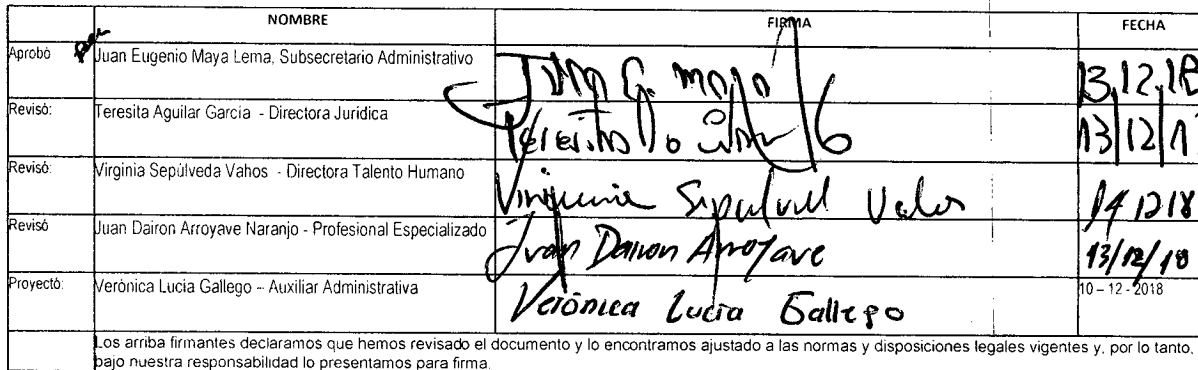 NOMBRE FIRMA FECHA
Aprobó Juan Eugenio Maya Lema, Subsecretario Administrativo 13,12,18
Revisó: Teresita Aguilar García - Directora Jurídica Teresita 13/12/1
Revisó: Virginia Sepúlveda Vahos - Directora Talento Humano 14 12 18
Revisó Juan Dairon Arroyave Naranjo - Profesional Especializado Juan Dairon Arroyave 13/12/18
Proyectó: Verónica Lucía Gallego – Auxiliar Administrativa Verónica Lucía Gallego 10 – 12 - 2018
Los arriba firmantes declaramos que hemos revisado el documento y lo encontramos ajustado a las normas y disposiciones legales vigentes y, por lo tanto,
bajo nuestra responsabilidad lo presentamos para firma.